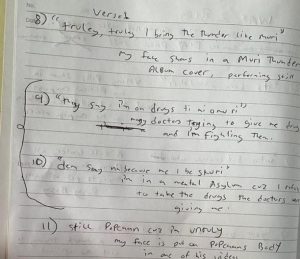 Verses
8) "truley, truley I bring the thunder like muri"
my face shows in a Muri Thunder
Album cover, performing
9) "they say im on drugs
doctors trying to give me drugs
and I'm fighting them.
10) "dem say
im in a mental Asylum cuz I
to take the drugs the doctors are
giving me.
11) still Popcaan cuz im unruly
my face is put on Popcaans Body
in one of his videos